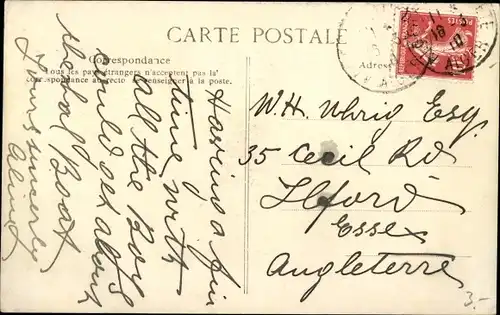 CARTE POSTALE
Correspondance
Tous les pays étrangers n'acceptent pas la
correspondance au recto Se renseigner à la poste.
Adres
Having a fine
time with
all the Boys
could set
the Boat
Yours sincerely
W.H. Uhrig Esq.
35 Cecil Rd
Ilford
Essex
Angleterre
3.-